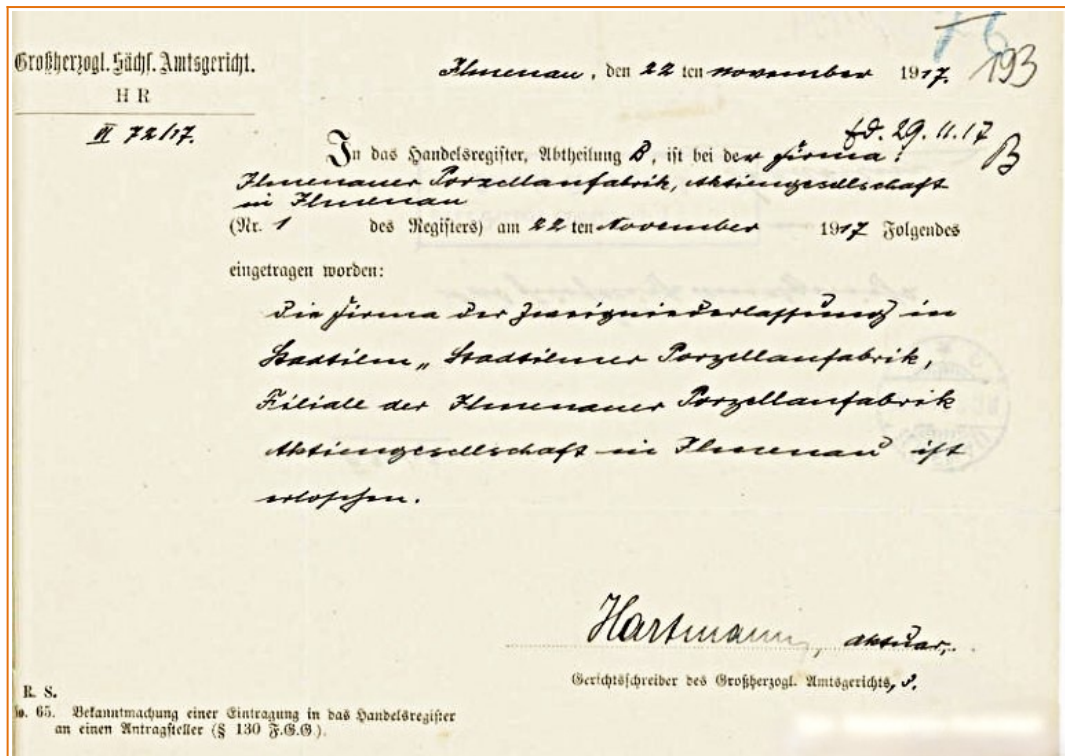 Großherzogl. Sächs. Amtsgericht.
H R
III 72/17.
Ilmenau, den 22 ten November 1917.
193
29.11.17
B
In das Handelsregister, Abtheilung B, ist bei der Firma:
Ilmenauer Porzellanfabrik, Aktiengesellschaft
in Ilmenau
(Nr. 1 des Registers) am 22 ten November 1917 Folgendes
eingetragen worden:
die Firma der Zweigniederlassung in
Stadtilm „Stadtilmer Porzellanfabrik,
Filiale der Ilmenauer Porzellanfabrik
Aktiengesellschaft in Ilmenau" ist
erloschen.
Hartmann, Aktuar,
Gerichtsschreiber des Großherzogl. Amtsgerichts,
R. S.
No. 65. Bekanntmachung einer Eintragung in das Handelsregister
an einen Antragsteller (§ 130 F.G.G.).